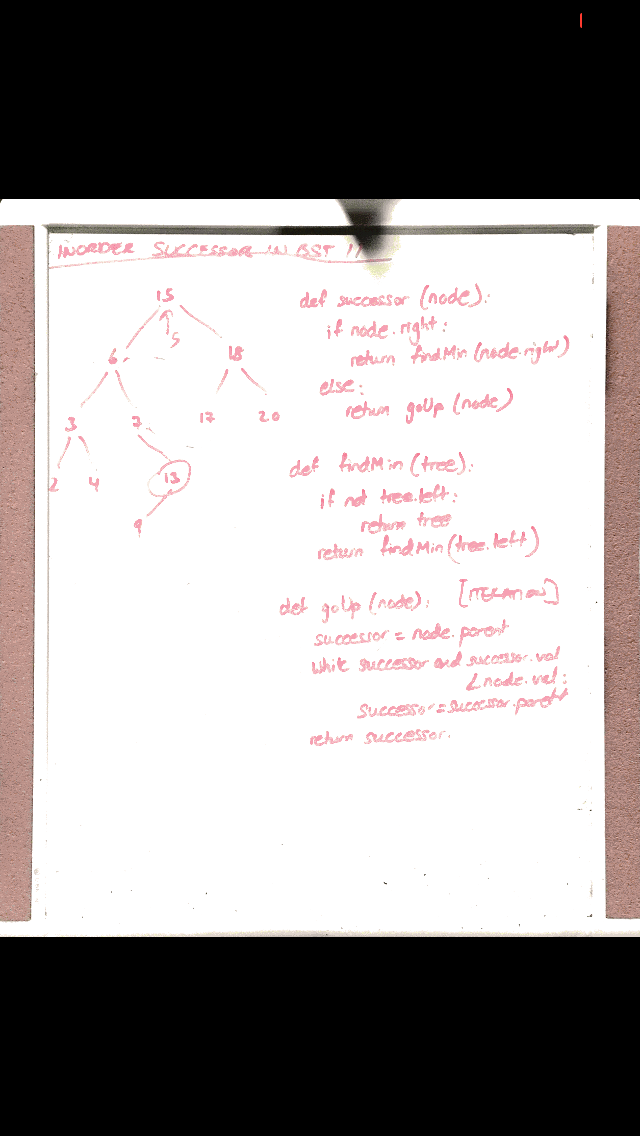 INORDER SUCCESSOR IN BST !!
15
S
6 18
3 7 17 20
2 4 13
9
def successor (node):
if node.right:
return findMin (node.right)
else:
return goUp (node)
def findMin (tree):
if not tree.left:
return tree
return findMin (tree.left)
def goUp (node): [ITERATION]
successor = node.parent
while successor and successor.val
< node.val:
successor = successor.parent
return successor.